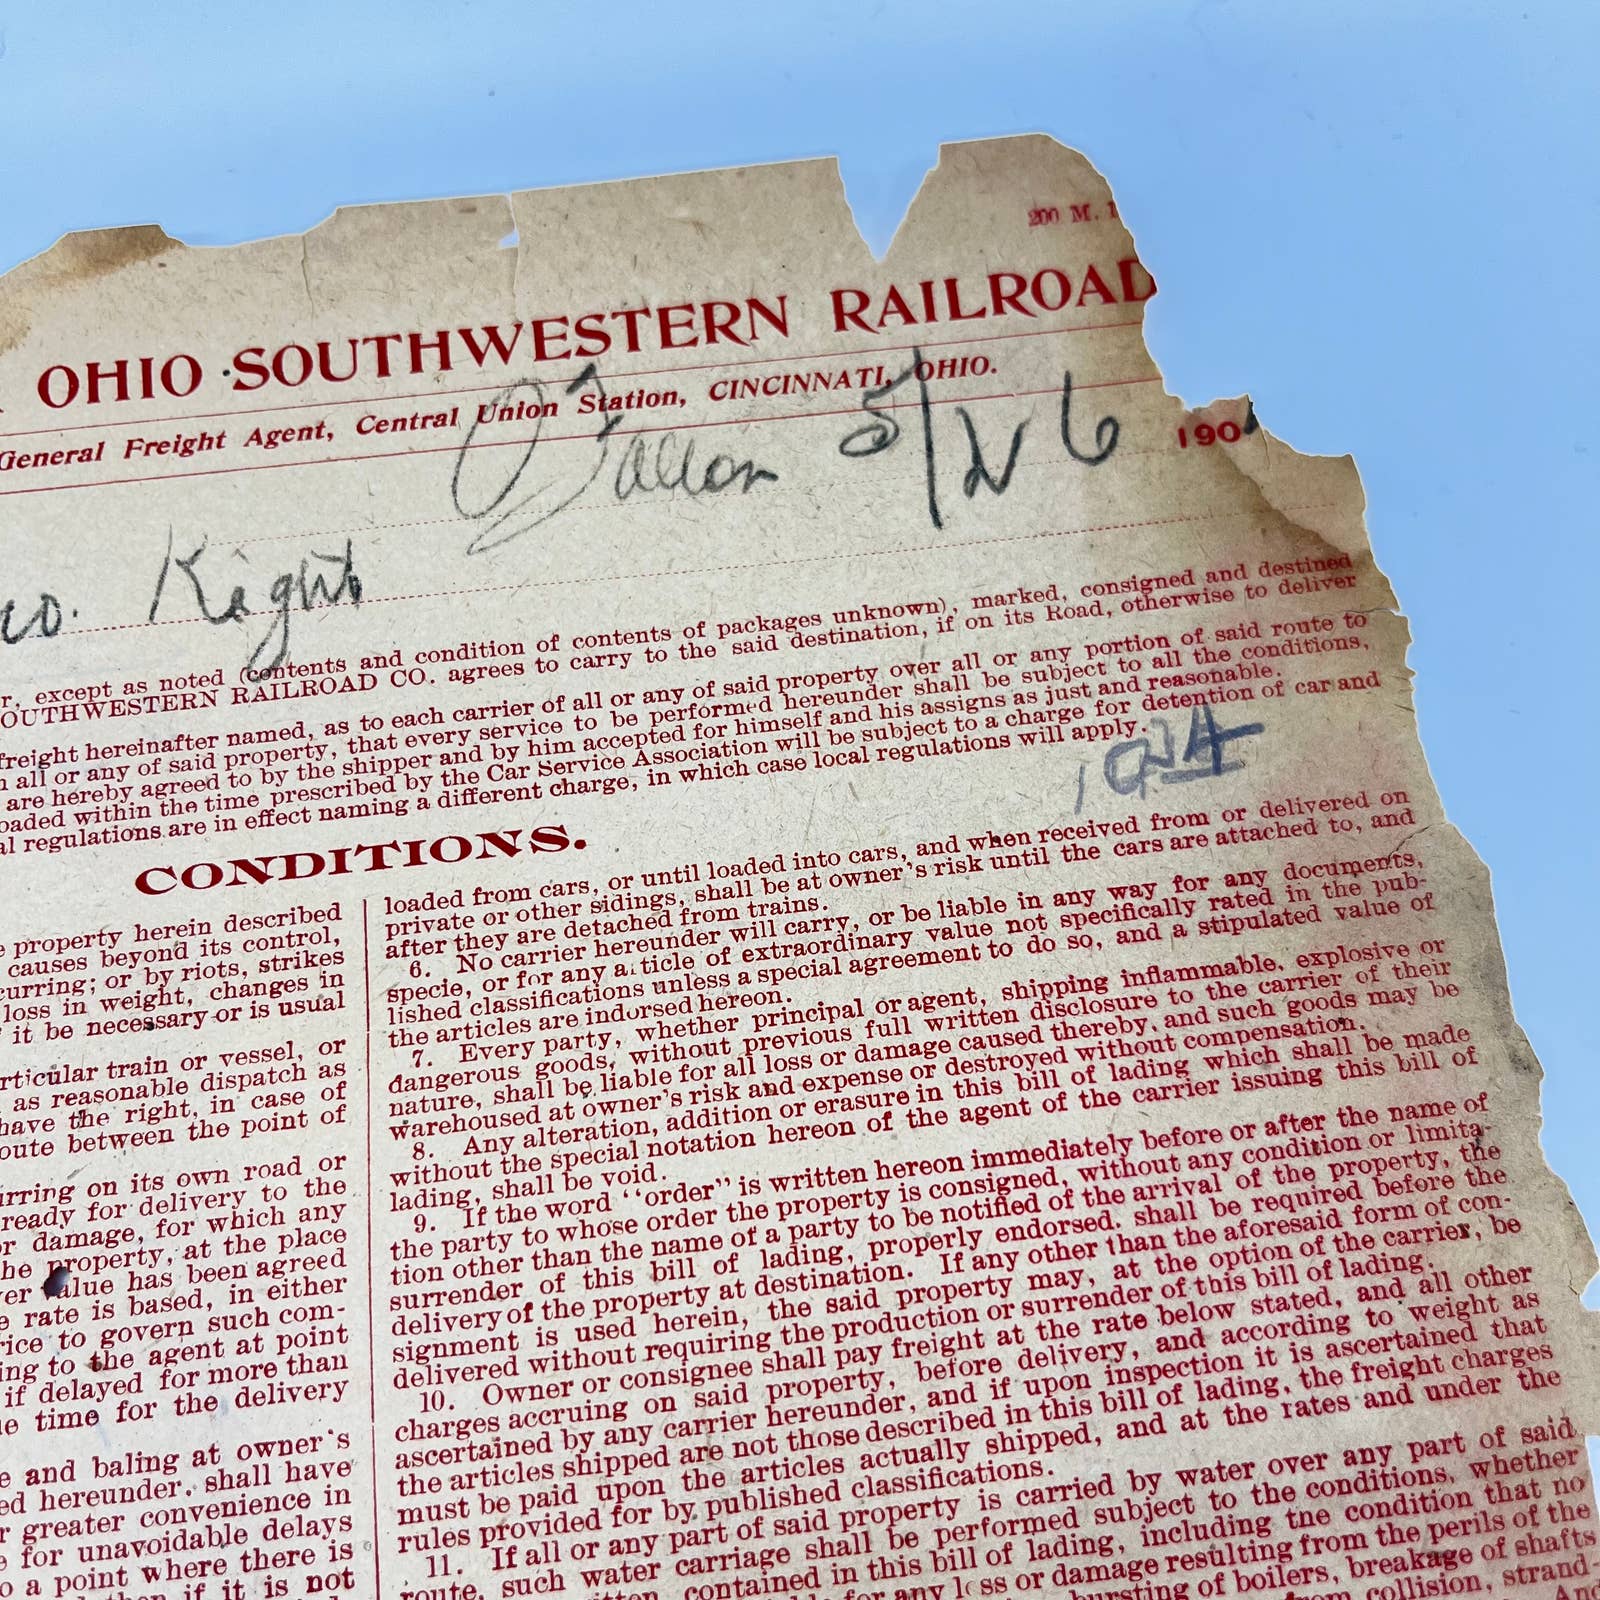 200 M. 1
OHIO SOUTHWESTERN RAILROAD
General Freight Agent, Central Union Station, CINCINNATI, OHIO.
O'Fallon 5/26 190
co. Kight
r, except as noted (contents and condition of contents of packages unknown), marked, consigned and destined
OUTHWESTERN RAILROAD CO. agrees to carry to the said destination, if on its Road, otherwise to deliver
freight hereinafter named, as to each carrier of all or any of said property over all or any portion of said route to
n all or any of said property, that every service to be performed hereunder shall be subject to all the conditions,
are hereby agreed to by the shipper and by him accepted for himself and his assigns as just and reasonable.
oaded within the time prescribed by the Car Service Association will be subject to a charge for detention of car and
al regulations are in effect naming a different charge, in which case local regulations will apply.
CONDITIONS.
e property herein described
causes beyond its control,
curring; or by riots, strikes
loss in weight, changes in
it be necessary or is usual
rticular train or vessel, or
as reasonable dispatch as
have the right, in case of
oute between the point of
urring on its own road or
ready for delivery to the
or damage, for which any
he property, at the place
er value has been agreed
e rate is based, in either
rice to govern such com-
ing to the agent at point
if delayed for more than
le time for the delivery
e and baling at owner's
ed hereunder. shall have
r greater convenience in
e for unavoidable delays
o a point where there is
if it is not
loaded from cars, or until loaded into cars, and when received from or delivered on
private or other sidings, shall be at owner's risk until the cars are attached to, and
after they are detached from trains.
6. No carrier hereunder will carry, or be liable in any way for any documents,
specie, or for any article of extraordinary value not specifically rated in the pub-
lished classifications unless a special agreement to do so, and a stipulated value of
the articles are indorsed hereon.
7. Every party, whether principal or agent, shipping inflammable, explosive or
dangerous goods, without previous full written disclosure to the carrier of their
nature, shall be liable for all loss or damage caused thereby, and such goods may be
warehoused at owner's risk and expense or destroyed without compensation.
8. Any alteration, addition or erasure in this bill of lading which shall be made
without the special notation hereon of the agent of the carrier issuing this bill of
lading, shall be void.
9. If the word "order" is written hereon immediately before or after the name of
the party to whose order the property is consigned, without any condition or limita-
tion other than the name of a party to be notified of the arrival of the property, the
surrender of this bill of lading, properly endorsed. shall be required before the
delivery of the property at destination. If any other than the aforesaid form of con-
signment is used herein, the said property may, at the option of the carrier, be
delivered without requiring the production or surrender of this bill of lading.
10. Owner or consignee shall pay freight at the rate below stated, and all other
charges accruing on said property, before delivery, and according to weight as
ascertained by any carrier hereunder, and if upon inspection it is ascertained that
the articles shipped are not those described in this bill of lading, the freight charges
must be paid upon the articles actually shipped, and at the rates and under the
rules provided for by published classifications.
11. If all or any part of said property is carried by water over any part of said
route, such water carriage shall be performed subject to the conditions, whether
contained in this bill of lading, including the condition that no
for any loss or damage resulting from the perils of the
bursting of boilers, breakage of shafts
collision, strand-